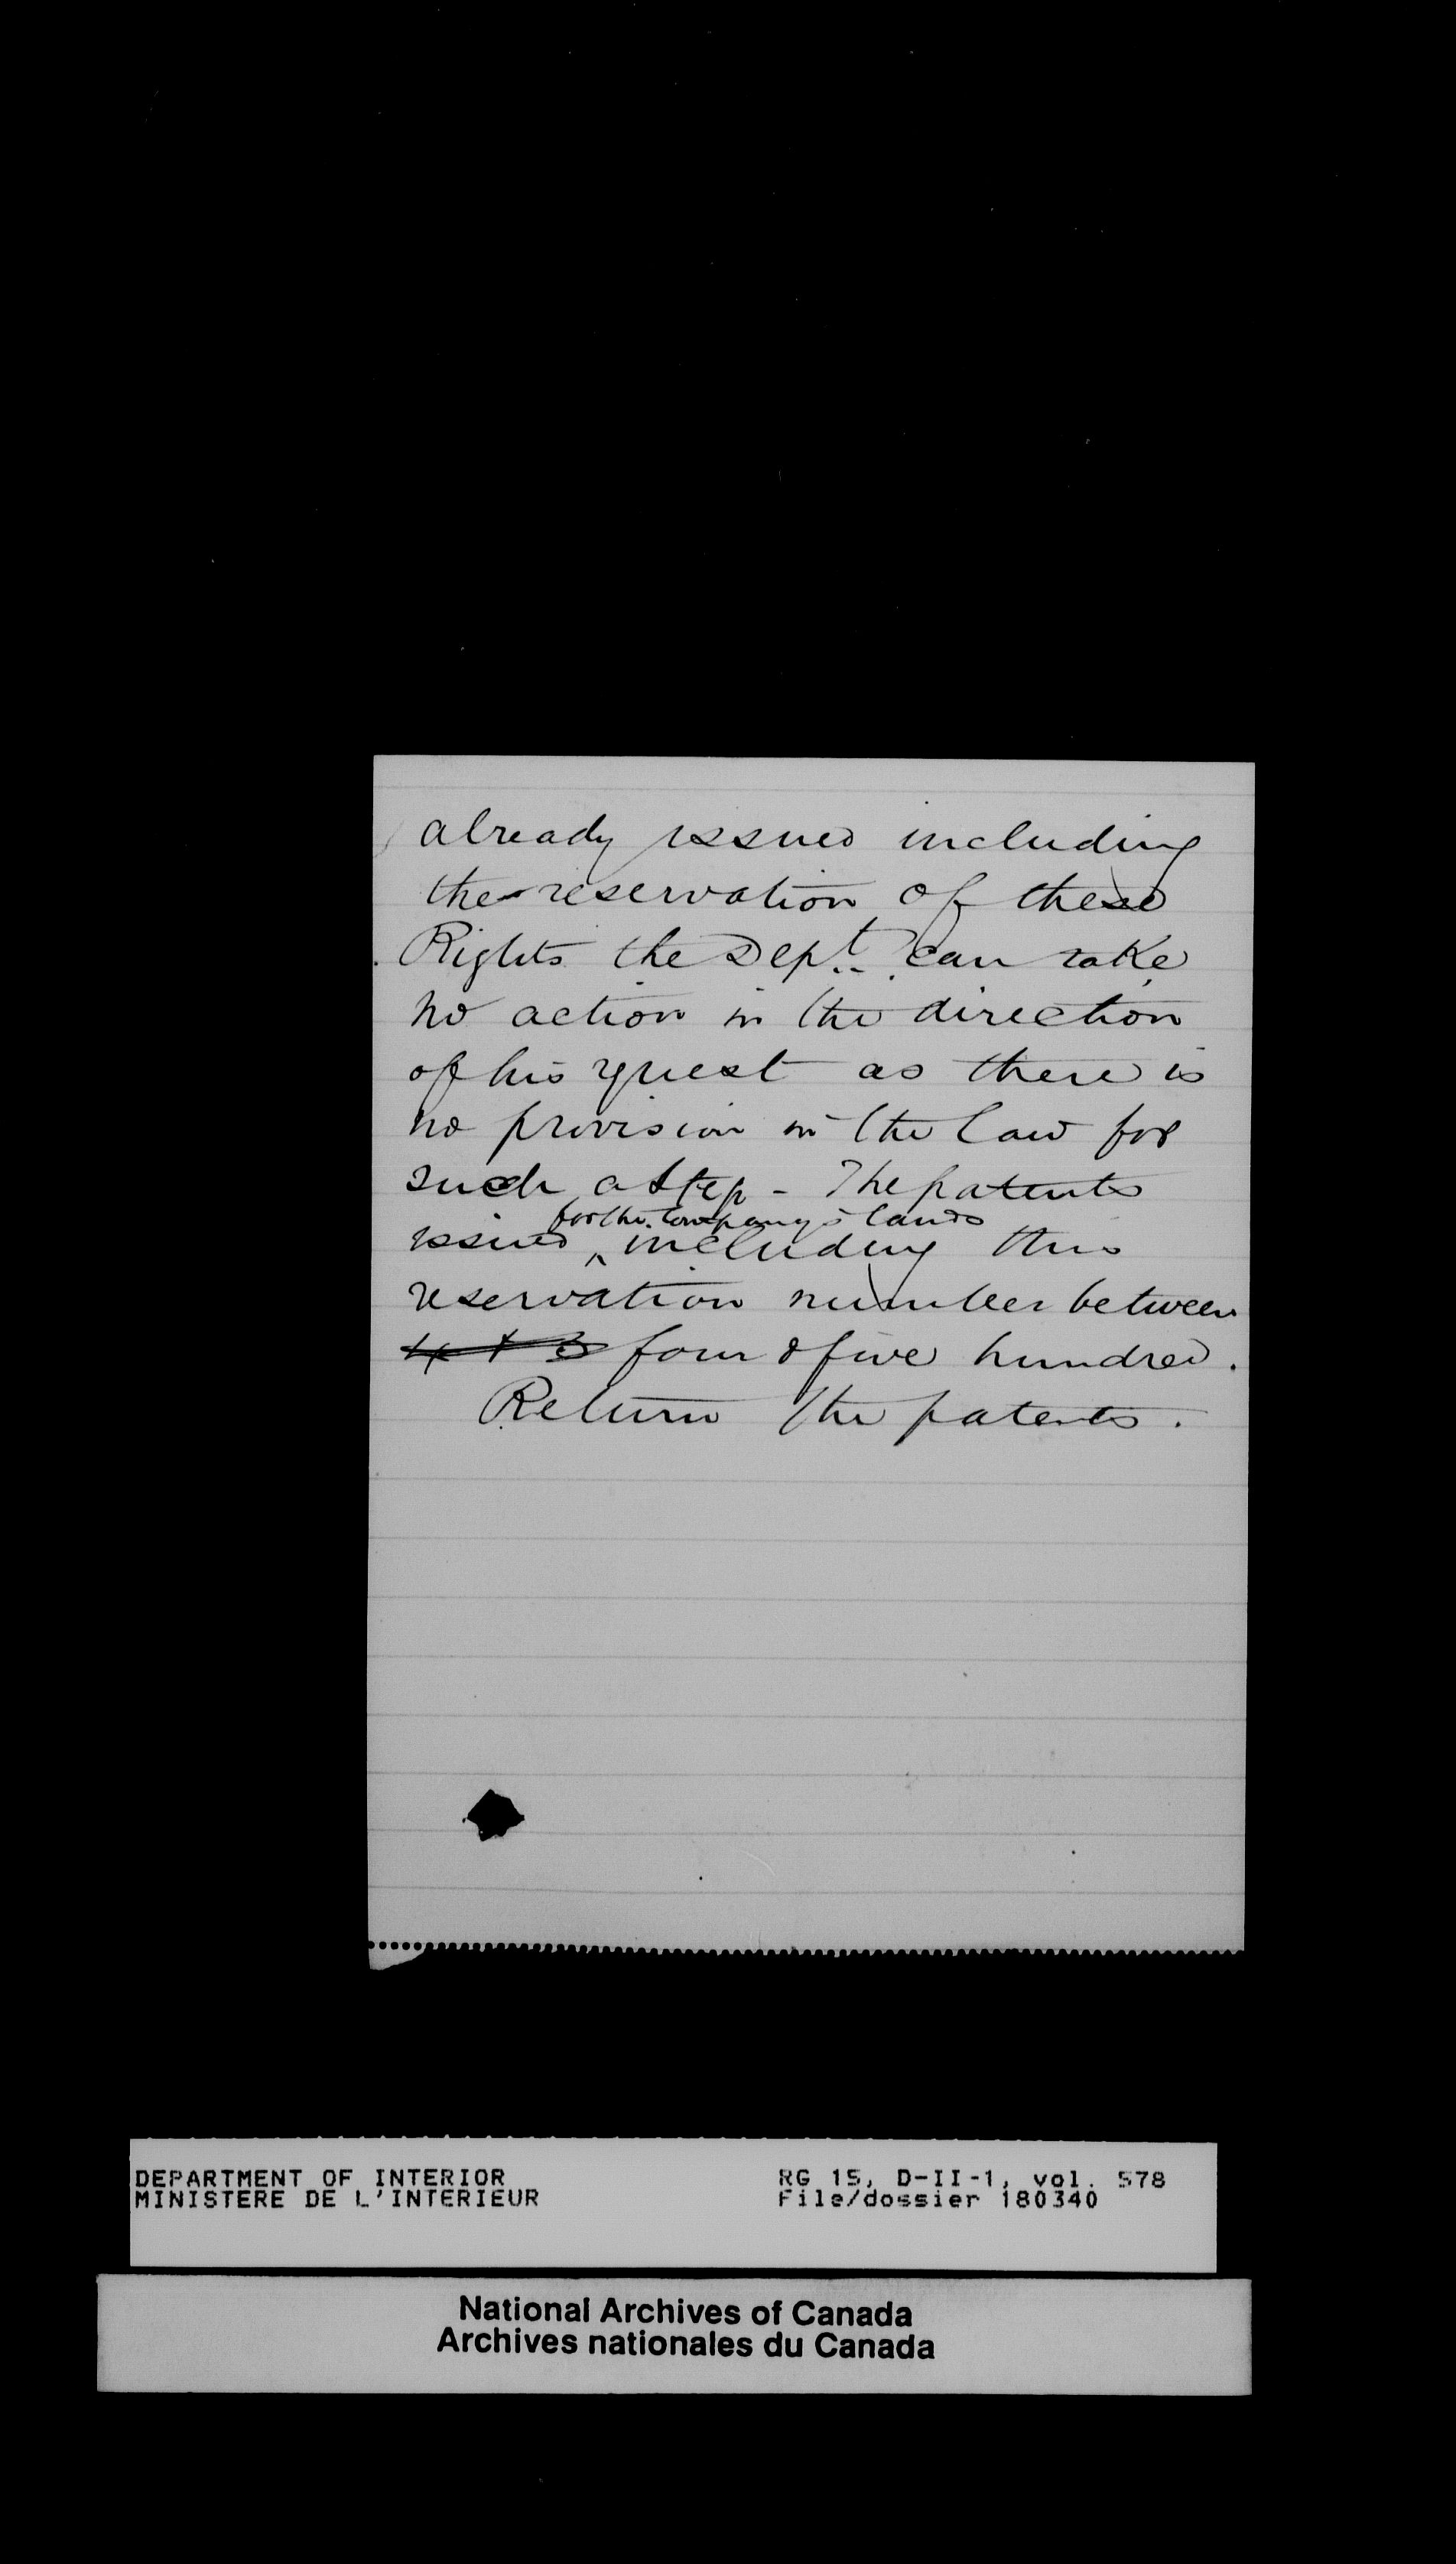 already issued including
the reservation of these
Rights the Dept. can take
no action in the direction
of his rquest as there is
no provision in the law for
such a step - The patents
for the Company's lands
issued ^ including this
reservation number between
4 & 5 four & five hundred.
Return the patents.
DEPARTMENT OF INTERIOR
MINISTERE DE L'INTERIEUR
RG 15, D-II-1, vol. 578
File/dossier 180340
National Archives of Canada
Archives nationales du Canada